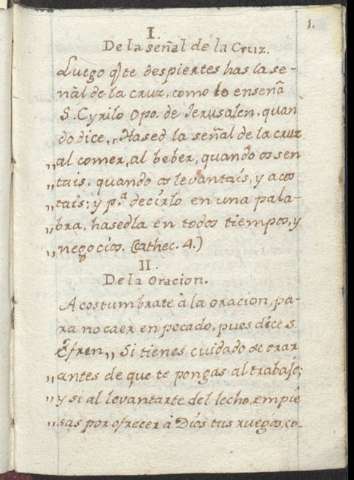 1.
I.
De la señal de la Cruz.
Luego q̃ te despiertes has la se-
ñal de la cruz, como lo enseña
S. Cyrilo Opo. de Jerusalen, quan
do dice,, Hased la señal de la cruz
,, al comer, al beber, quando os sen
,, tais, quando os levantais, y acos
,, tais; y pª decirlo en una pala-
,, bra, hasedla en todos tiempos, y
,, negocios. (Cathec. 4.)
II.
De la Oracion.
Acostumbrate à la oracion, pa-
ra no caer en pecado, pues dice S.
Efren,, Si tienes cuidado de orar
,, antes de que te pongas al trabajo;
,, y si al levantarte del lecho, empie
,, sas por ofrecer à Dios tus ruegos, co-